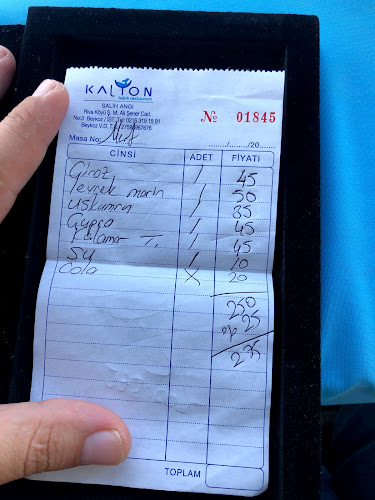 KALYON
SALİH ANGI
Riva Köyü Ş. M. Ali Şener Cad.
No:3 Beykoz / İST. Tel: 0216 319 15 91
Beykoz V.D. T.C.
No 01845
Masa No: ......../......../20......
CİNSİ ADET FİYATI
Giroz 1 45
levrek marin 1 50
Uskumru 1 35
1 45
Kalamar T. 1 45
Su 1 10
Cola X 20
250
25
275
TOPLAM